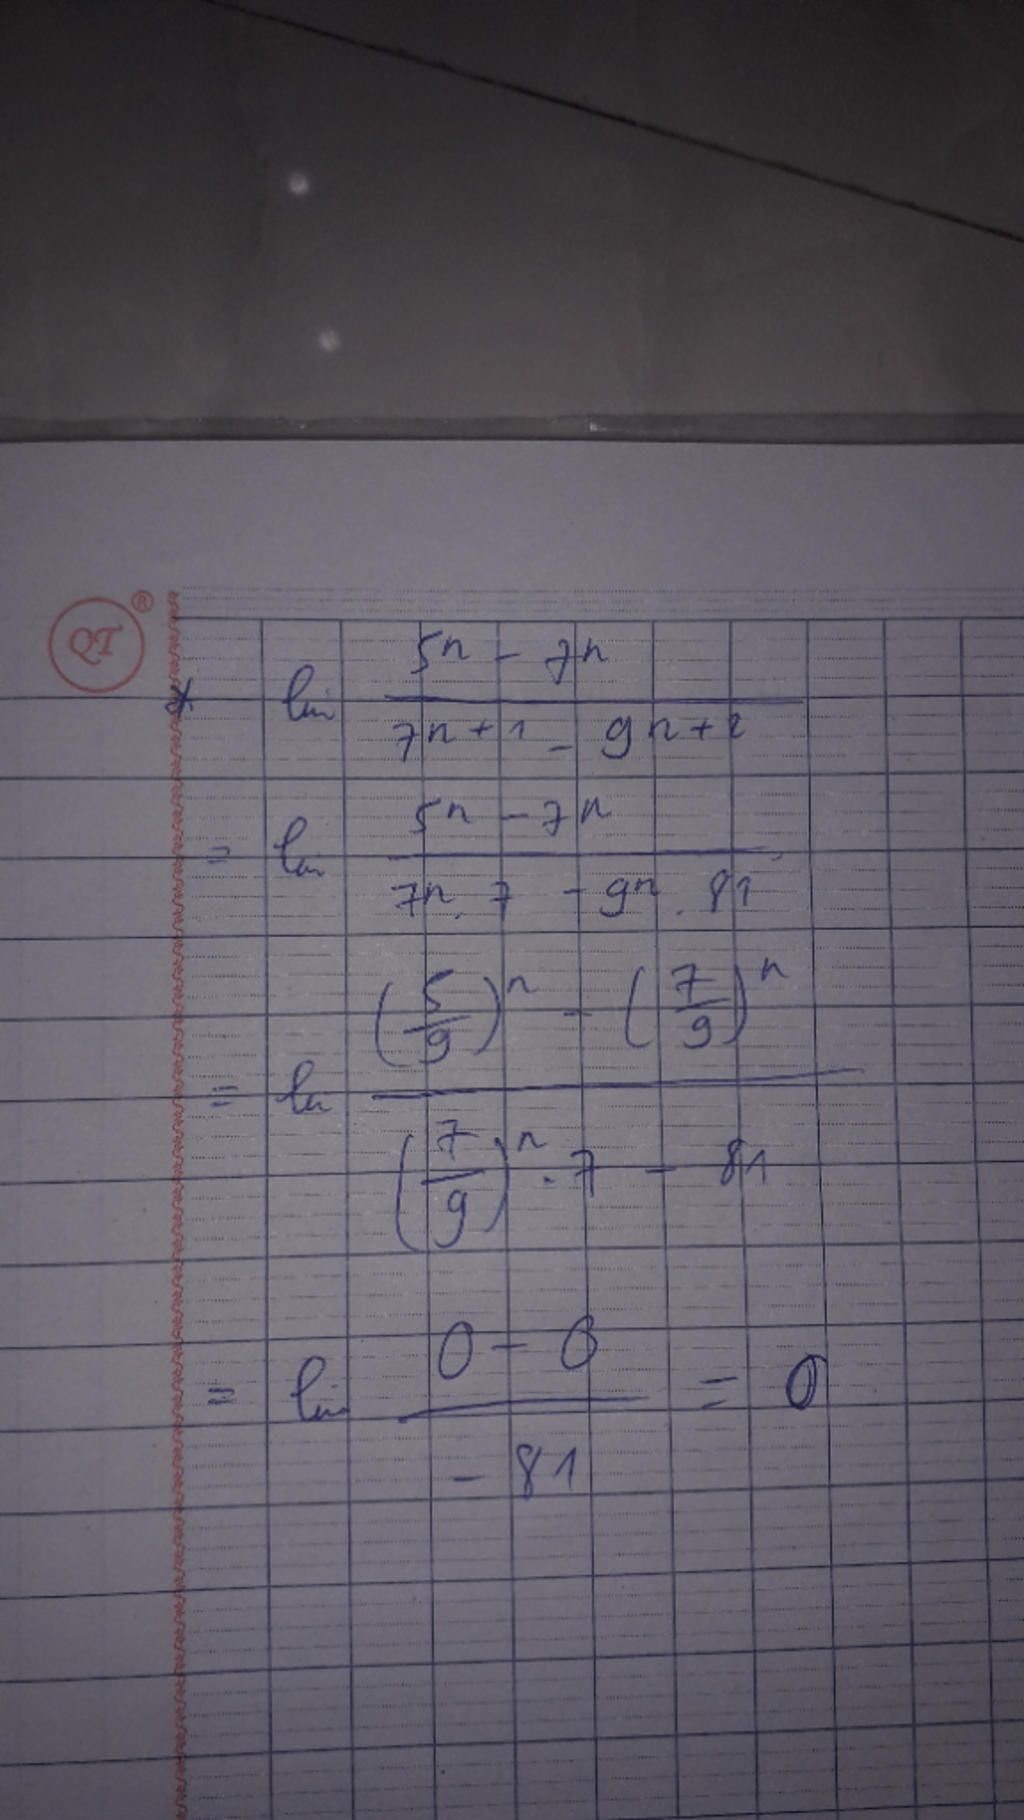 QT ®
* lim (5^n - 7^n)/(7^{n+1} - 9^{n+2})
= lim (5^n - 7^n)/(7^n . 7 - 9^n . 81)
= lim ((5/9)^n - (7/9)^n)/((7/9)^n . 7 - 81)
= lim (0 - 0)/(-81) = 0